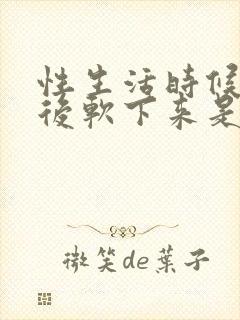 性生活時候
後軟下來是
微笑de葉子